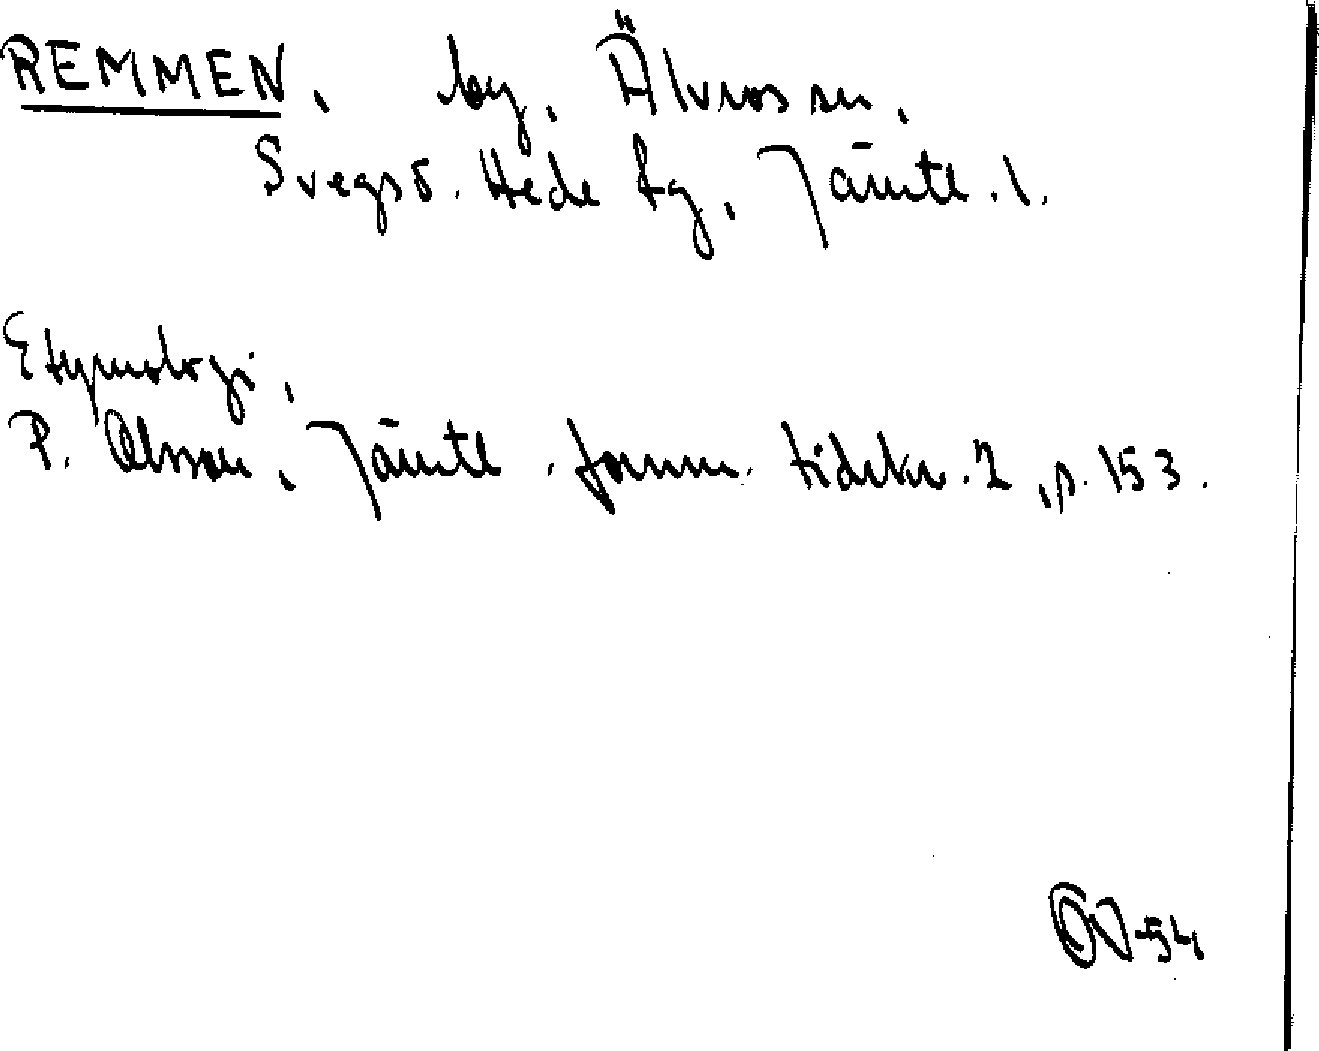 REMMEN, by, Älvros sn,
Svegs o. Hede tg, Jämtl. l.
Etymologi,
P. Olsson, Jämtl. fornm. tidskr. 2, p. 153.
-54